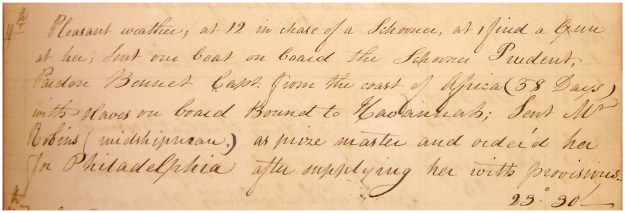 Pleasant weather, at 12 in chase of a Schooner, at 1 fired a Gun
at her, Sent one boat on board the Schooner Prudent,
Pardon Bennet Capt. from the coast of Africa (58 Days)
with slaves on board Bound to Havannah; Sent Mr
Robins (midshipman.) as prize master and order'd her
for Philadelphia after supplying her with provisions.
23° 30